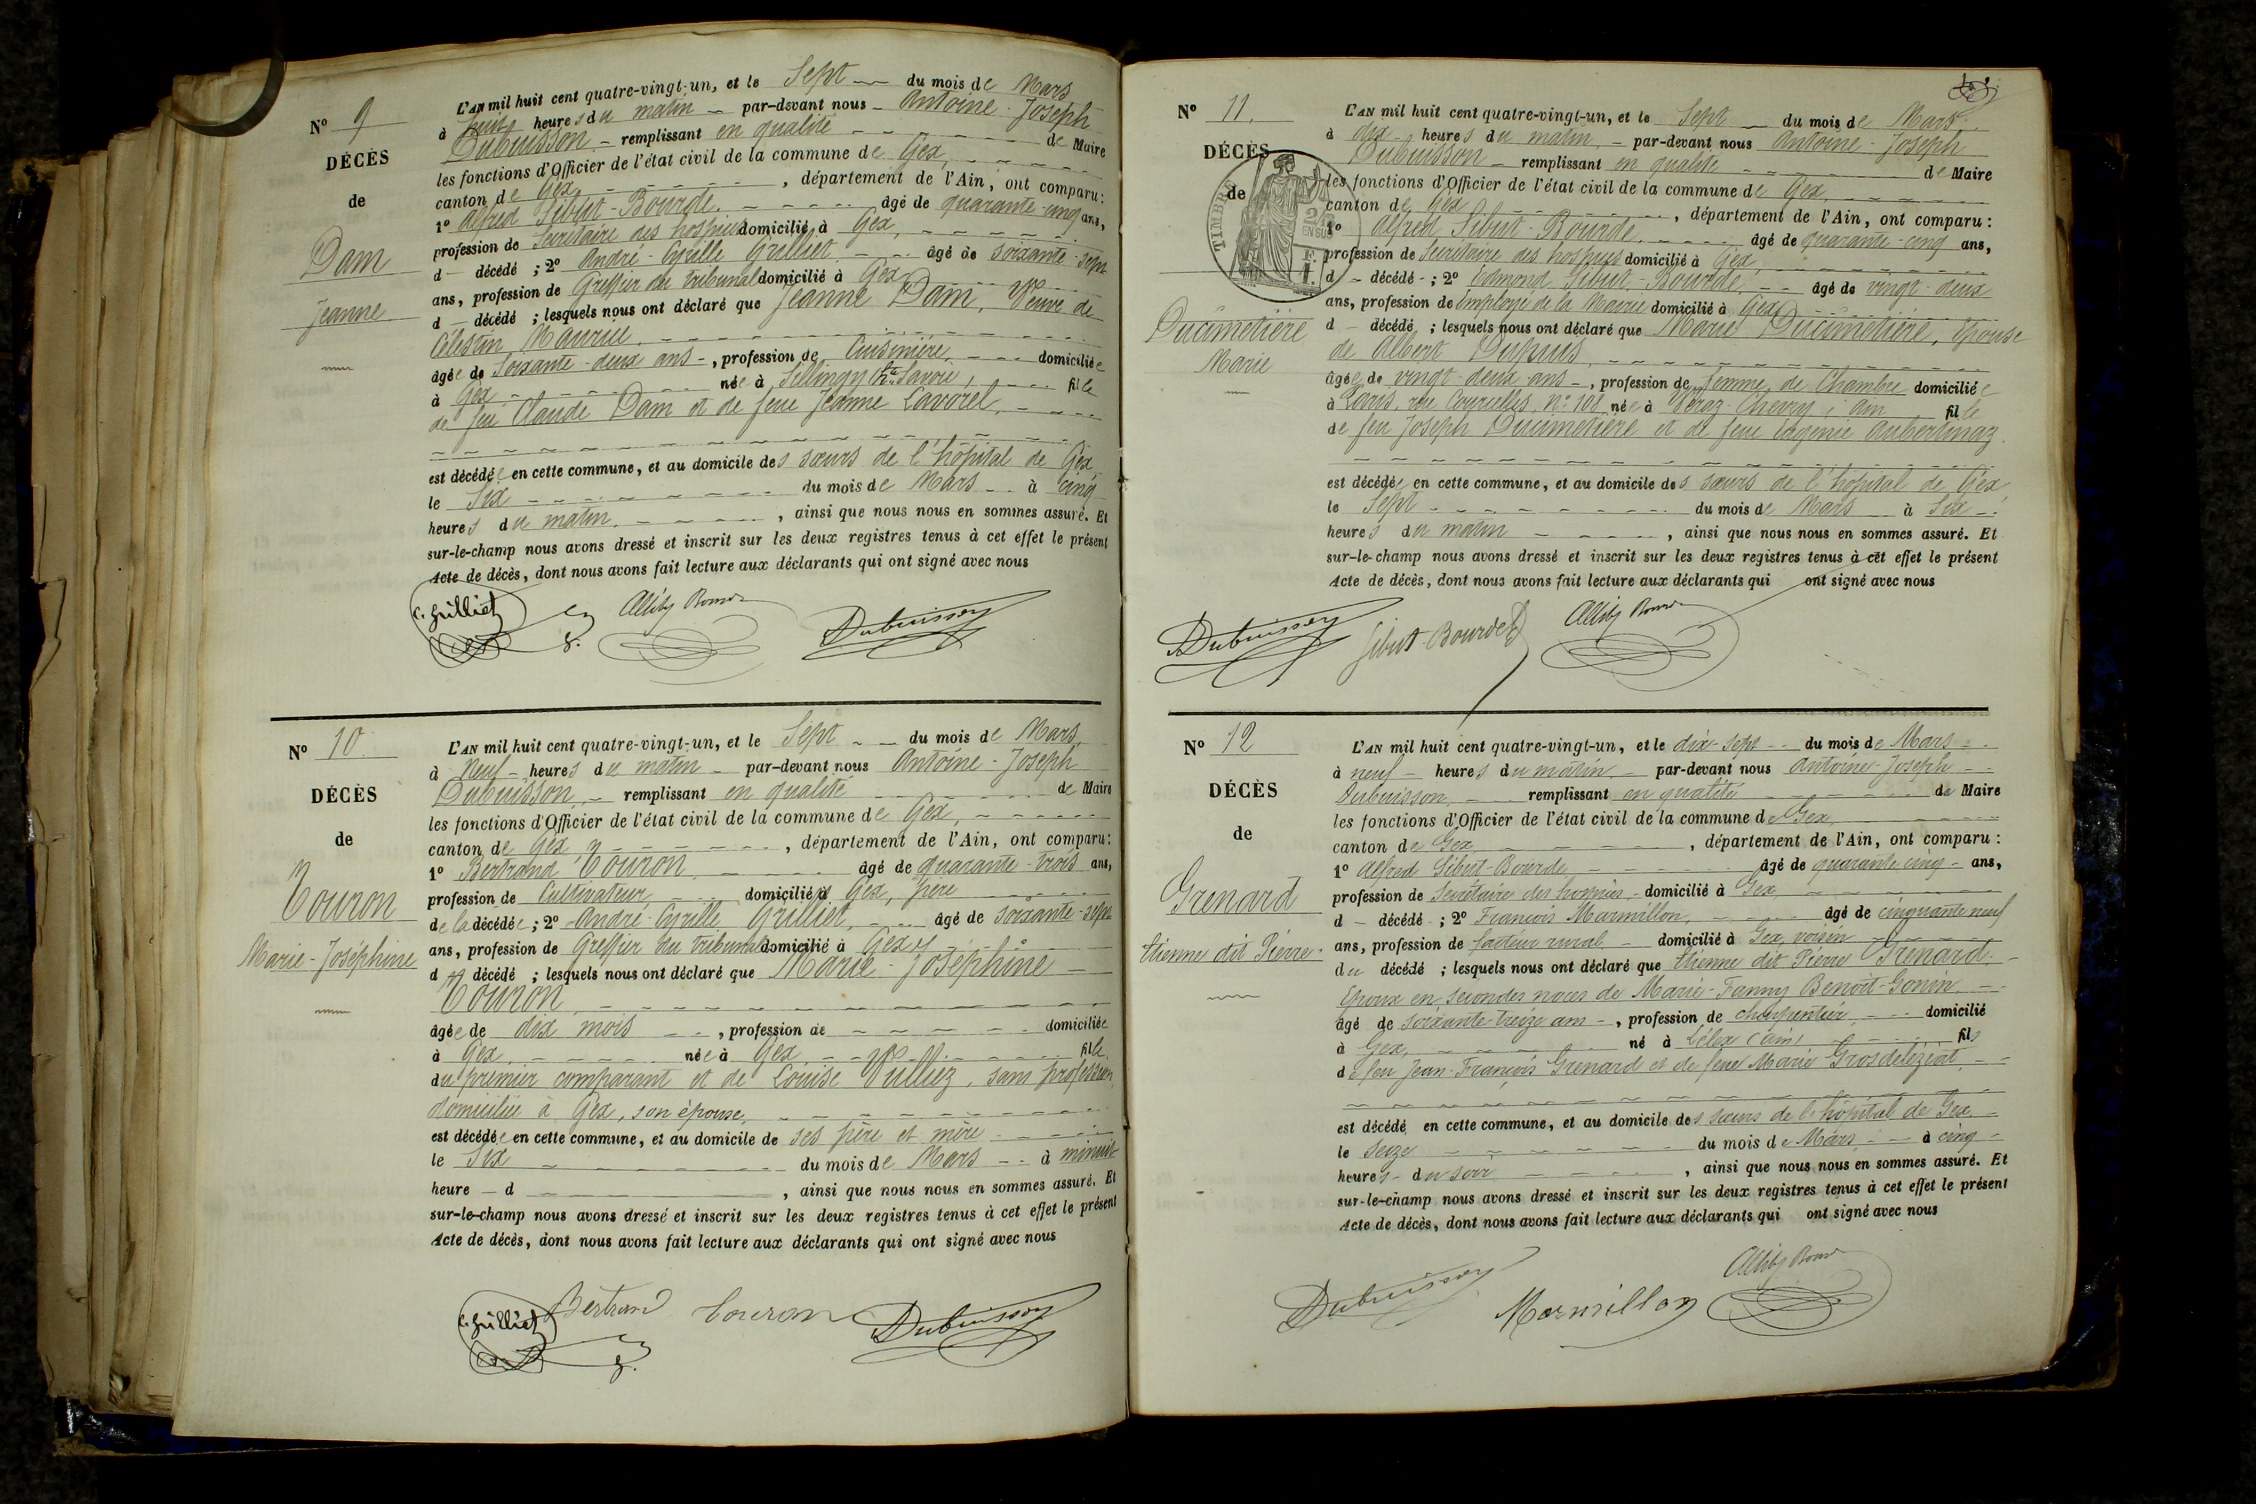 N° 9
DÉCÈS
de
Dam
Jeanne
L'AN mil huit cent quatre-vingt-un, et le Sept du mois de Mars
à huit heures du matin par-devant nous Antoine-Joseph
Dubuisson, remplissant en qualité de Maire
les fonctions d'Officier de l'état civil de la commune de Gex,
canton de Gex, département de l'Ain, ont comparu:
1° Alfred Sibut-Bourde, âgé de quarante-cinq ans,
profession de Secrétaire des hospices domicilié à Gex,
d décédé ; 2° André-Cyrille Grilliet, âgé de soixante-sept
ans, profession de Greffier du tribunal domicilié à Gex
d décédé ; lesquels nous ont déclaré que Jeanne Dam, Veuve de
Célestin Maurice,
âgée de Soixante-deux ans, profession de Cuisinière, domiciliée
à Gex née à Sillingy Hte Savoie, fille
de feu Claude Dam et de feue Jeanne Lavorel,
est décédée en cette commune, et au domicile des sœurs de l'hôpital de Gex,
le Six du mois de Mars à cinq
heures du matin, ainsi que nous nous en sommes assuré. Et
sur-le-champ nous avons dressé et inscrit sur les deux registres tenus à cet effet le présent
Acte de décès, dont nous avons fait lecture aux déclarants qui ont signé avec nous
C. Grilliet Dubuisson
N° 10
DÉCÈS
de
Touron
Marie-Joséphine
L'AN mil huit cent quatre-vingt-un, et le Sept du mois de Mars,
à Neuf heures du matin par-devant nous Antoine-Joseph
Dubuisson, remplissant en qualité de Maire
les fonctions d'Officier de l'état civil de la commune de Gex,
canton de Gex, département de l'Ain, ont comparu:
1° Bertrand Touron, âgé de quarante-trois ans,
profession de Cultivateur, domicilié à Gex, père
de la décédée ; 2° André-Cyrille Grilliet, âgé de soixante-sept
ans, profession de Greffier du tribunal domicilié à Gex
d décédé ; lesquels nous ont déclaré que Marie-Joséphine
Touron,
âgée de dix mois, profession de domiciliée
à Gex, née à Gex, fille
du premier comparant et de Louise Vulliez, sans profession,
domiciliée à Gex, son épouse,
est décédée en cette commune, et au domicile de ses père et mère
le Six du mois de Mars à minuit
heure d, ainsi que nous nous en sommes assuré. Et
sur-le-champ nous avons dressé et inscrit sur les deux registres tenus à cet effet le présent
Acte de décès, dont nous avons fait lecture aux déclarants qui ont signé avec nous
C. Grilliet Bertrand Touron Dubuisson
N° 11.
DÉCÈS
de
Ducimetière
Marie
TIMBRE
2/10 EN SUS
F.
1.
L'AN mil huit cent quatre-vingt-un, et le Sept du mois de Mars
à dix heures du matin, par-devant nous Antoine-Joseph
Dubuisson remplissant en qualité de Maire
les fonctions d'Officier de l'état civil de la commune de Gex,
canton de Gex, département de l'Ain, ont comparu :
1° Alfred Sibut-Bourde, âgé de quarante-cinq ans,
profession de Secrétaire des hospices domicilié à Gex,
d décédé ; 2° Edmond Sibut-Bourde, âgé de vingt-deux
ans, profession de Employé de la Mairie domicilié à Gex
d décédé ; lesquels nous ont déclaré que Marie Ducimetière, épouse
de Albert Dupuis,
âgée de vingt-deux ans, profession de femme de Chambre domiciliée
à Paris, rue Courcelles, N° 108 née à Véraz-Chevry, Ain fille
de feu Joseph Ducimetière et de feue Virginie Aubertinaz
est décédée en cette commune, et au domicile des sœurs de l'hôpital de Gex
le Sept du mois de Mars à Six
heures du matin, ainsi que nous nous en sommes assuré. Et
sur-le-champ nous avons dressé et inscrit sur les deux registres tenus à cet effet le présent
Acte de décès, dont nous avons fait lecture aux déclarants qui ont signé avec nous
Dubuisson Sibut-Bourde
N° 12
DÉCÈS
de
Grenard
Etienne dit Pierre
L'AN mil huit cent quatre-vingt-un, et le dix-sept du mois de Mars
à neuf heures du matin, par-devant nous Antoine-Joseph
Dubuisson, remplissant en qualité de Maire
les fonctions d'Officier de l'état civil de la commune de Gex
canton de Gex, département de l'Ain, ont comparu :
1° Alfred Sibut-Bourde âgé de quarante-cinq ans,
profession de Secrétaire des hospices domicilié à Gex
d décédé ; 2° François Marmillon, âgé de cinquante neuf
ans, profession de facteur rural domicilié à Gex, voisin
du décédé ; lesquels nous ont déclaré que Etienne dit Pierre Grenard,
Epoux en secondes noces de Marie-Fanny Benoît-Gonin
âgé de soixante-treize ans, profession de charpentier, domicilié
à Gex, né à Lélex (Ain) fils
de feu Jean-François Grenard et de feue Marie Grosdelézéat,
est décédé en cette commune, et au domicile des sœurs de l'hôpital de Gex,
le seize du mois de Mars à cinq
heures du soir, ainsi que nous nous en sommes assuré. Et
sur-le-champ nous avons dressé et inscrit sur les deux registres tenus à cet effet le présent
Acte de décès, dont nous avons fait lecture aux déclarants qui ont signé avec nous
Dubuisson Marmillon